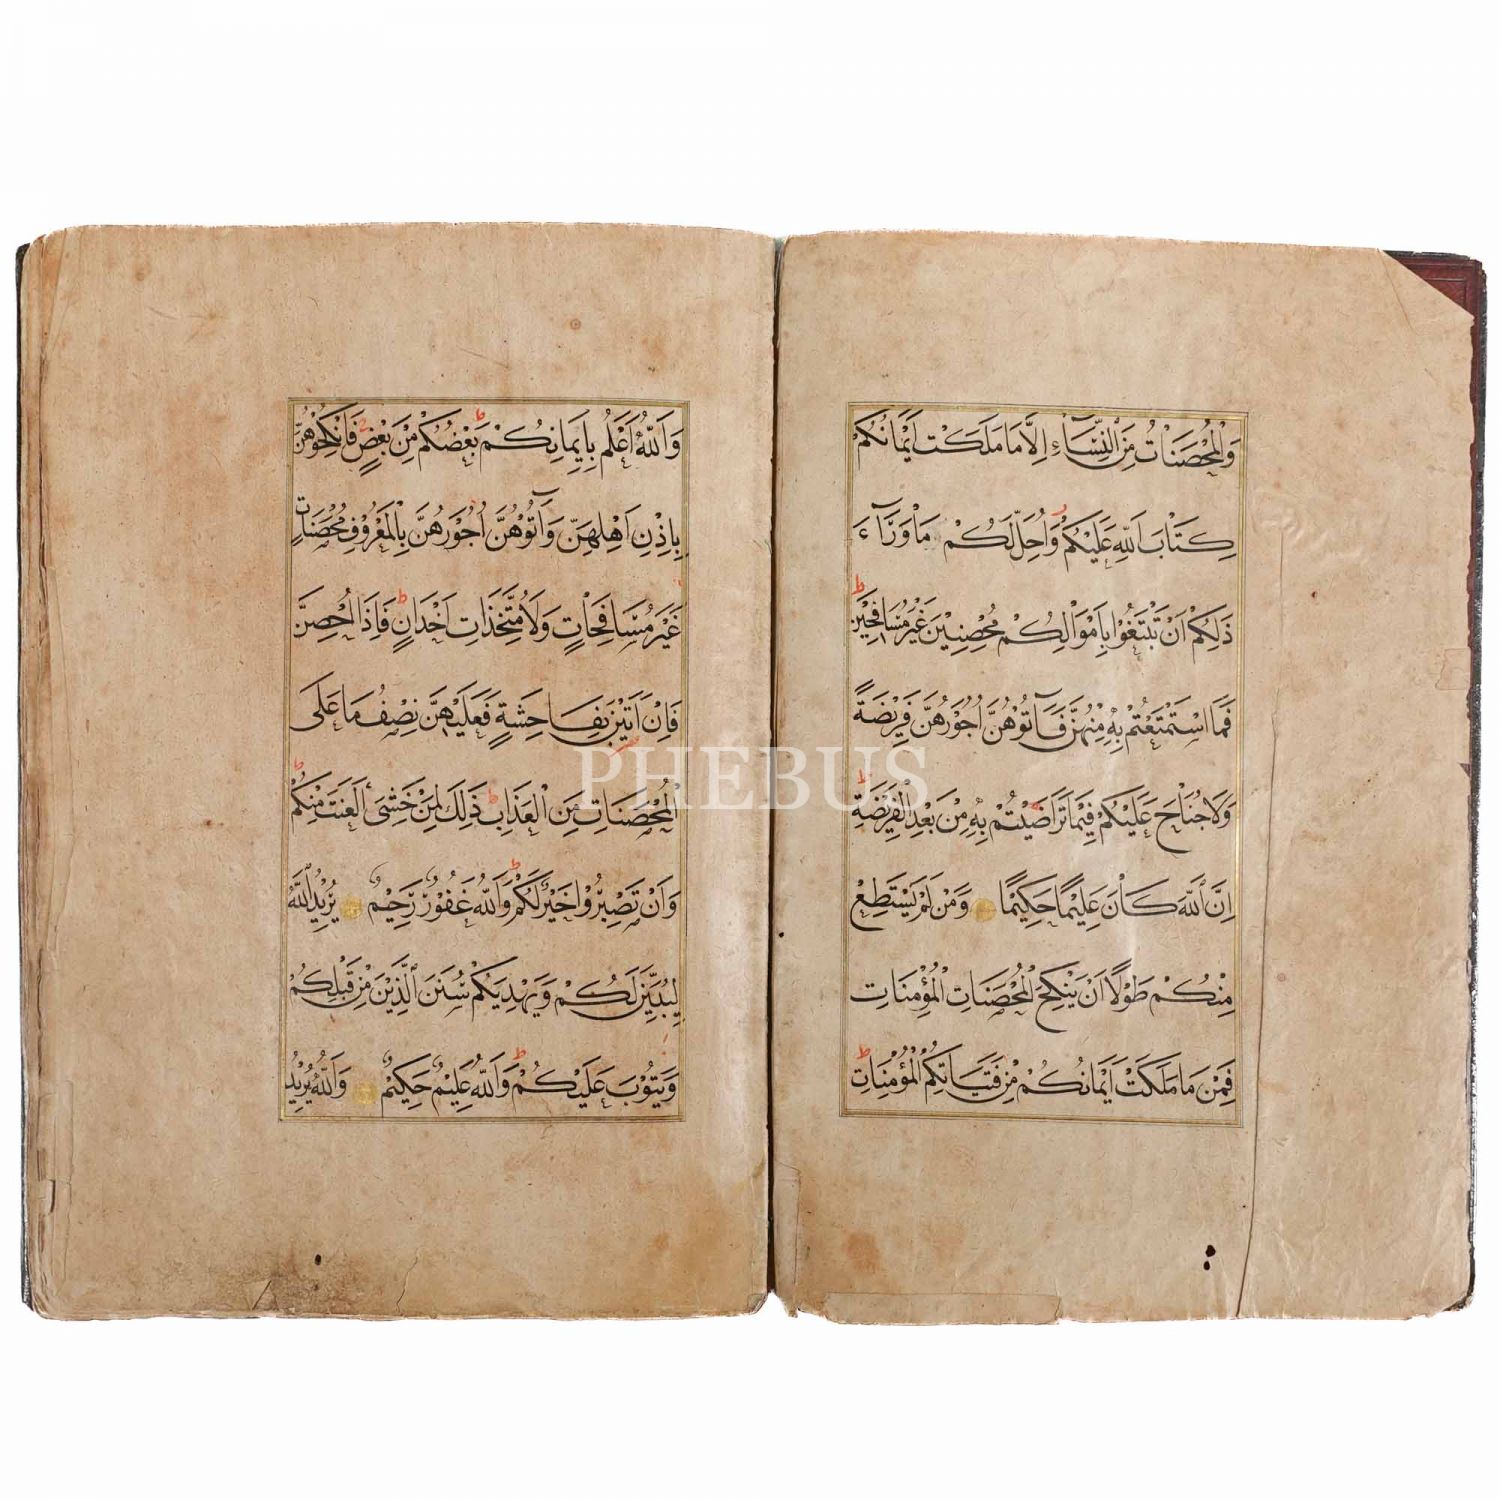 وَالْمُحْصَنَاتُ مِنَ النِّسَاءِ اِلَّا مَا مَلَكَتْ اَيْمَانُكُمْ
كِتَابَ اللّٰهِ عَلَيْكُمْ وَاُحِلَّ لَكُمْ مَا وَرَآءَ
ذٰلِكُمْ اَنْ تَبْتَغُوا بِاَمْوَالِكُمْ مُحْصِنِينَ غَيْرَ مُسَافِحِينَ
فَمَا اسْتَمْتَعْتُمْ بِهِ مِنْهُنَّ فَآتُوهُنَّ اُجُورَهُنَّ فَرِيضَةً
وَلَا جُنَاحَ عَلَيْكُمْ فِيمَا تَرَاضَيْتُمْ بِهِ مِنْ بَعْدِ الْفَرِيضَةِ
اِنَّ اللّٰهَ كَانَ عَلِيمًا حَكِيمًا وَمَنْ لَمْ يَسْتَطِعْ
مِنْكُمْ طَوْلًا اَنْ يَنْكِحَ الْمُحْصَنَاتِ الْمُؤْمِنَاتِ
فَمِنْ مَا مَلَكَتْ اَيْمَانُكُمْ مِنْ فَتَيَاتِكُمُ الْمُؤْمِنَاتِ
وَاللّٰهُ اَعْلَمُ بِاِيمَانِكُمْ بَعْضُكُمْ مِنْ بَعْضٍ فَانْكِحُوهُنَّ
بِاِذْنِ اَهْلِهِنَّ وَآتُوهُنَّ اُجُورَهُنَّ بِالْمَعْرُوفِ مُحْصَنَاتٍ
غَيْرَ مُسَافِحَاتٍ وَلَا مُتَّخِذَاتِ اَخْدَانٍ فَاِذَا اُحْصِنَّ
فَاِنْ اَتَيْنَ بِفَاحِشَةٍ فَعَلَيْهِنَّ نِصْفُ مَا عَلَى
الْمُحْصَنَاتِ مِنَ الْعَذَابِ ذٰلِكَ لِمَنْ خَشِىَ الْعَنَتَ مِنْكُمْ
وَاَنْ تَصْبِرُوا خَيْرٌ لَكُمْ وَاللّٰهُ غَفُورٌ رَحِيمٌ يُرِيدُ اللّٰهُ
لِيُبَيِّنَ لَكُمْ وَيَهْدِيَكُمْ سُنَنَ الَّذِينَ مِنْ قَبْلِكُمْ
وَيَتُوبَ عَلَيْكُمْ وَاللّٰهُ عَلِيمٌ حَكِيمٌ وَاللّٰهُ يُرِيدُ
PHEBUS